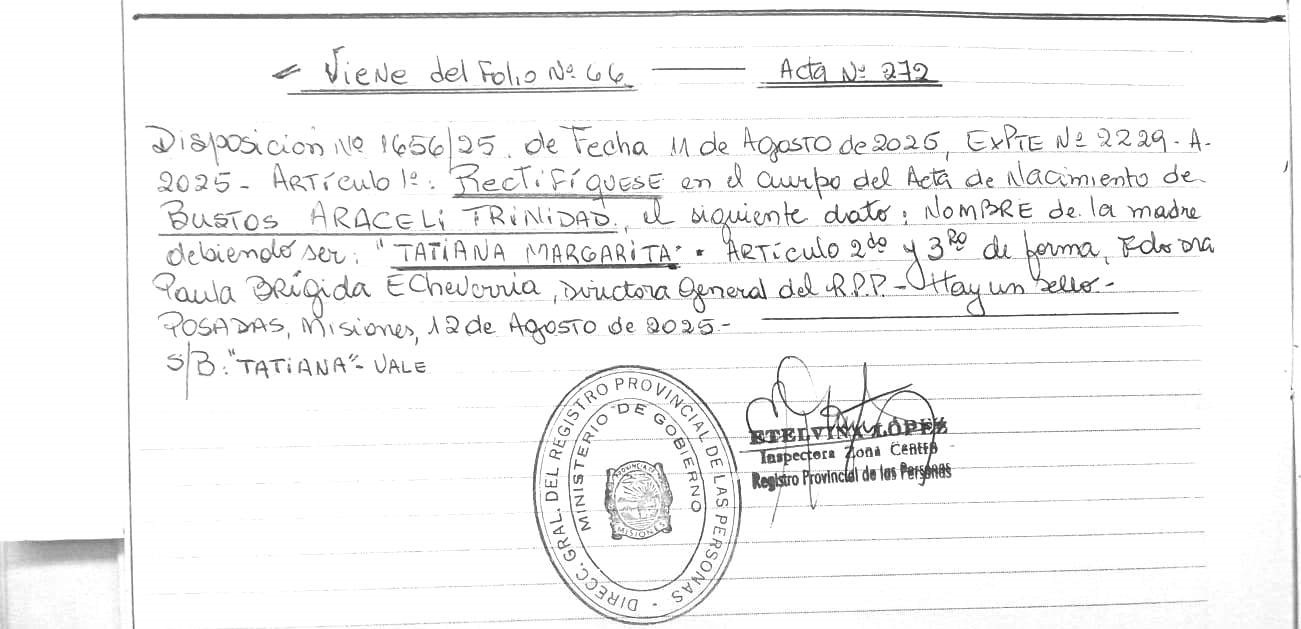 Viene del Folio Nº 66 Acta Nº 272
Disposición Nº 1656/25. de Fecha 11 de Agosto de 2025, EXPTE Nº 2229-A-
2025- ARTículo 1º: RECTIFÍQUESE en el cuerpo del Acta de Nacimiento de
BUSTOS ARACELI TRINIDAD, el siguiente dato: NOMBRE de la madre
debiendo ser: "TATIANA MARGARITA". ARTículo 2do y 3RO de forma, Fdo Dra
Paula BRÍgida ECheverria, Directora General del R.P.P.- Hay un sello-
POSADAS, Misiones, 12 de Agosto de 2025.-
S/B: "TATIANA"- VALE
DIRECC. GRAL. DEL REGISTRO PROVINCIAL DE LAS PERSONAS -
MINISTERIO DE GOBIERNO
PROVINCIA DE
MISIONES
ETELVINA LÓPEZ
Inspectora Zona Centro
Registro Provincial de las Personas